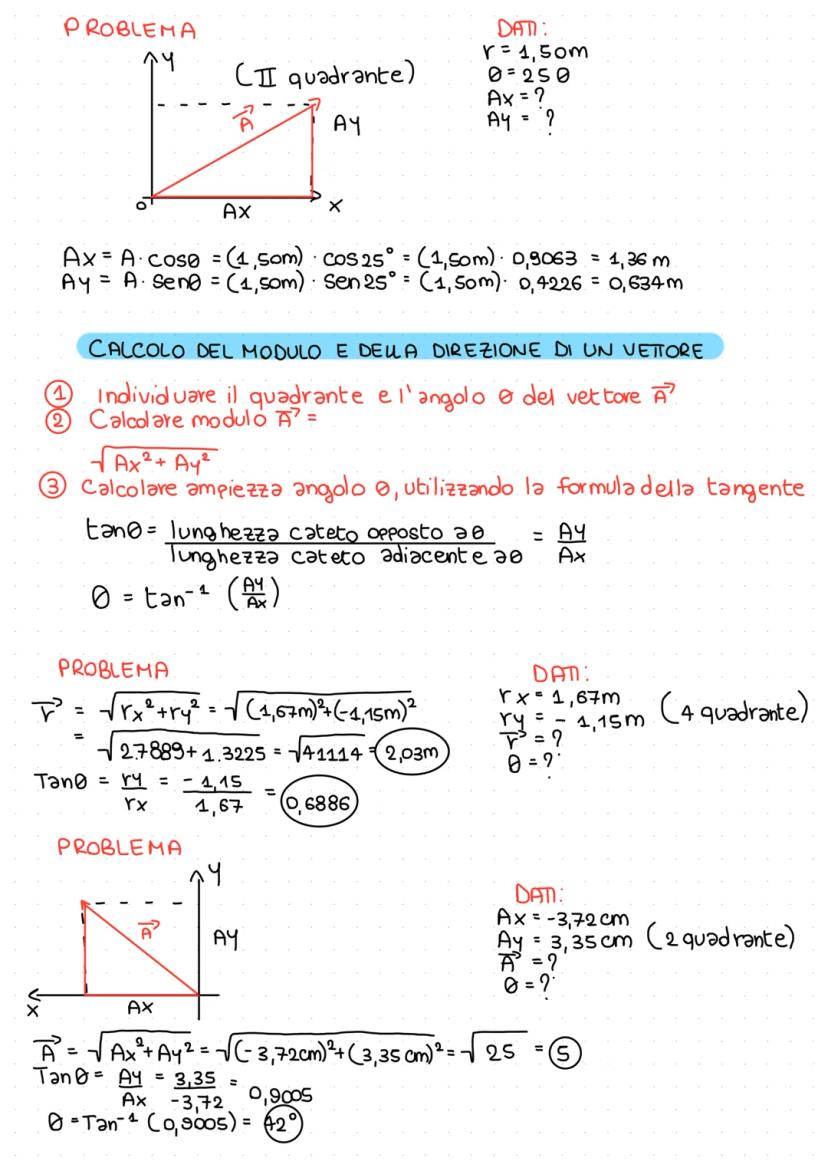 PROBLEMA
DATI:
Y
(II quadrante)
r = 1,50m
θ = 250
Ax = ?
Ay = ?
A⃗
Ay
0
Ax
X
Ax = A · cosθ = (1,50m) · cos25° = (1,50m) · 0,9063 = 1,36 m
Ay = A · senθ = (1,50m) · sen25° = (1,50m) · 0,4226 = 0,634m
CALCOLO DEL MODULO E DELLA DIREZIONE DI UN VETTORE
① Individuare il quadrante e l'angolo θ del vettore A⃗
② Calcolare modulo A⃗ =
√Ax² + Ay²
③ Calcolare ampiezza angolo θ, utilizzando la formula della tangente
tanθ = lunghezza cateto opposto a θ / lunghezza cateto adiacente a θ = Ay / Ax
θ = tan⁻¹ (Ay/Ax)
PROBLEMA
DATI:
rx = 1,67m
ry = - 1,15m (4 quadrante)
r⃗ = ?
θ = ?
r⃗ = √rx²+ry² = √(1,67m)²+(-1,15m)²
= √2.7889+1.3225 = √41114 = 2,03m
Tanθ = ry / rx = - 1,15 / 1,67 = 0,6886
PROBLEMA
Y
DATI:
Ax = -3,72 cm
Ay = 3,35 cm (2 quadrante)
A⃗ = ?
θ = ?
A⃗
Ay
X
Ax
A⃗ = √Ax²+Ay² = √(-3,72cm)²+(3,35 cm)² = √25 = 5
Tanθ = Ay / Ax = 3,35 / -3,72 = 0,9005
θ = Tan⁻¹ (0,9005) = 42°